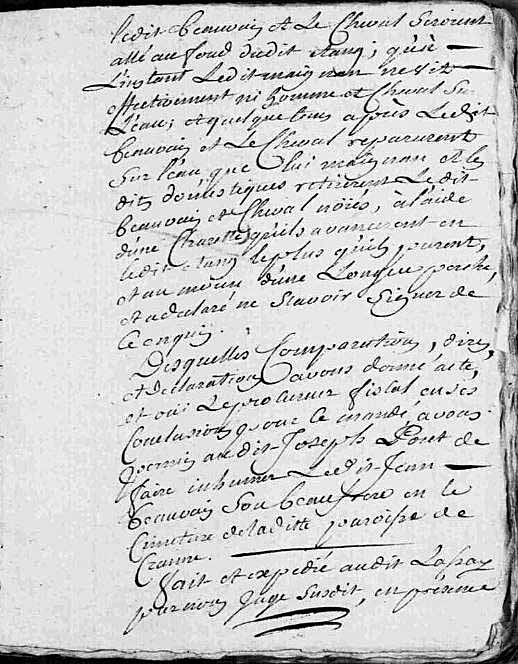 ledit beauvais et Le Cheval seroient
allé au fond dudit Etang; qu'à
L'instant Ledit maignan ne vit
effectivement ni homme et Cheval Sur
L'eau; et quelque tems après Ledit
beauvais et Le Cheval reparurent
Sur L'eau, que lui maignan et les
dits domestiques retirerent Ledit
beauvais et Cheval noiés, à l'aide
d'une Charette qu'ils avancerent en
ledit etang le plus qu'ils purent,
et au moien d'une Longue perche,
et a declaré ne Scavoir Signer de
Ce enquis.
Desquelles Comparution, dires,
et declarations avons donné acte,
et oui Le procureur fiscal en ses
Conclusions pour ce mandé, avons
permis audit Joseph Pivet de
faire inhumer Ledit Jean
beauvais Son beaufrere en le
Cimetiere de laditte paroisse de
Cranne.
fait et expedié audit Lassay
par nous Juge Susdit, en présence